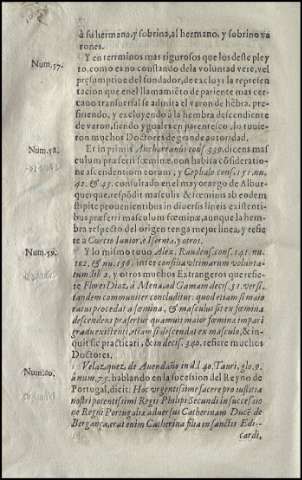 à su hermano, y sobrina, al hermano, y sobrino va
rones.
Num. 57.
Y en terminos mas rigurosos que los deste pley
to, como en no constando de la voluntad vere, vel
presumptiue del fundador, de excluir la represen
tacion que en el llamamiēto de pariente mas cer-
cano transuersal se admita el varon de hēbra, pre-
siriendo, y excluyendo à la hembra descendiente
de varon, siendo yguales en parentesco, lo tuuie-
ron muchos Doctores de grande autoridad.
Num. 58.
Et in primis Ancharranus cons. 339. dicens mas
culum præferri fœmine, non habita cōsideratio-
ne ascendentium eorum, y Cephalo cons. 151. nu.
42. & 43. consultado en el mayorazgo de Albur-
querque, respōdit masculis & fœminis ab eodem
stipite prouenientibus in diuersis lineis existenti-
bus præferri masculum fœminæ, aunque la hem-
bra respecto del origen tenga mejor linea, y refie
te a Curtio Iunior, à Isernia, y otros.
Num. 59.
Y lo mismo tuuo Alex. Raudens. cons. 141. nu.
122. & nu. 158. inter consilia vltimarum volunta-
tum lib. 2. y otros muchos Estrangeros que refie-
re Flores Diaz, à Mena ad Gamam decis. 31. versi.
tandem communiter concluditur: quod etiam si maio
ratus procedat a fœmina, & masculus sit ex fœmina
descendens præfertur quamuis maior fœmina in pari
gradu existenti, etiam si descendat ex masculo, & in-
quit sic practicari, & in decis. 340. refiere muchos
Doctores.
Num. 60.
Velazquez de Auendaño in d. l. 40. Tauri, glo. 9.
à num. 75. hablando en la sucession del Reyno de
Portugal, dicit: Hoc vrgentissime facere pro iustitia
nostri potentissimi Regis Philipi Secundi in successio
ne Regni Portugaliæ aduersus Catherinam Ducē de
Bergança, erat enim Catherina filia Infantis Edu-
cardi,